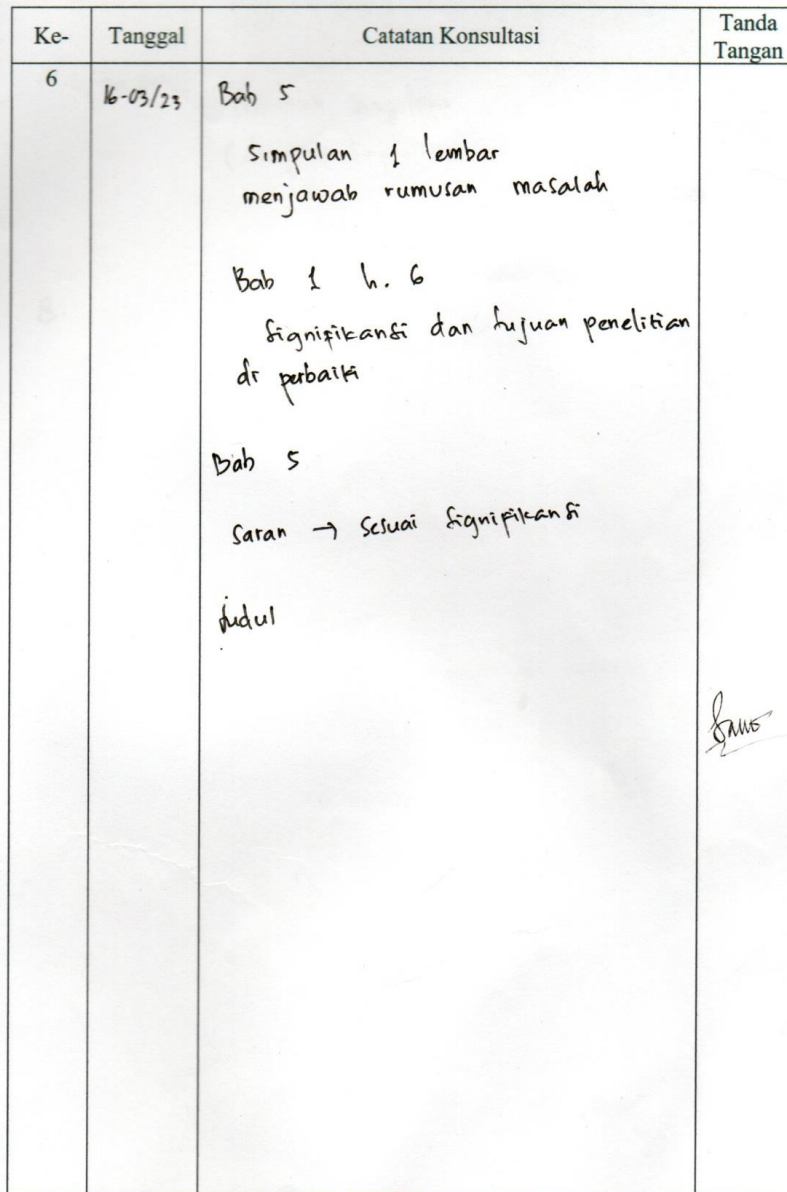 Ke- Tanggal Catatan Konsultasi Tanda Tangan
6 16-03/23 Bab 5
Simpulan 1 lembar
menjawab rumusan masalah
Bab 1 h. 6
Signifikansi dan tujuan penelitian
di perbaiki
Bab 5
Saran → Sesuai Signifikansi
Judul